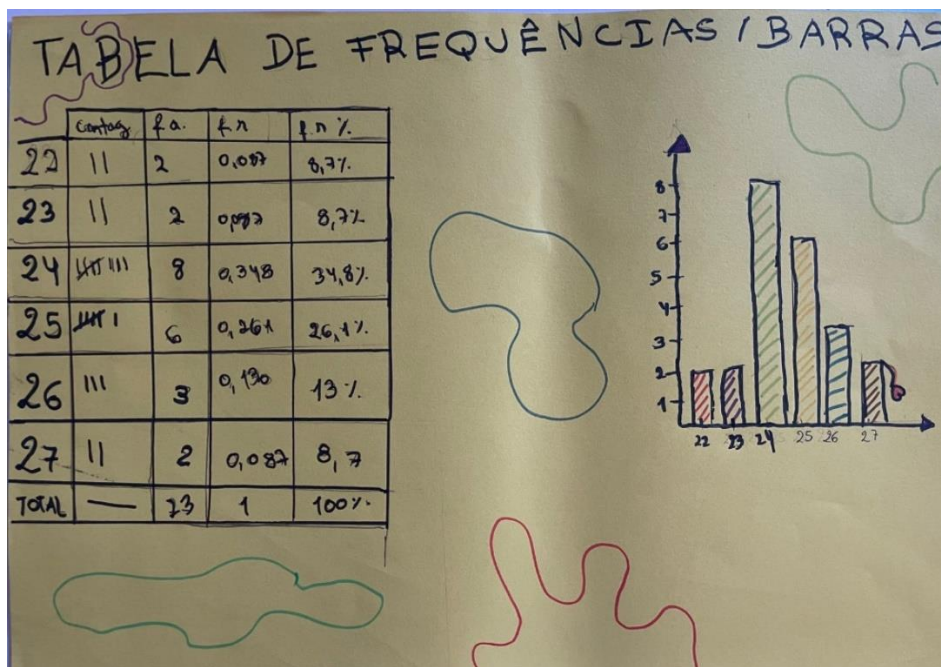 TABELA DE FREQUÊNCIAS / BARRAS
contag f a. f r f r %
22 || 2 0,087 8,7%
23 || 2 0,087 8,7%
24 8 0,348 34,8%
25 6 0,261 26,1%
26 ||| 3 0,130 13%
27 || 2 0,087 8,7
TOTAL — 23 1 100%
8
7
6
5
4
3
2
1
22 23 24 25 26 27